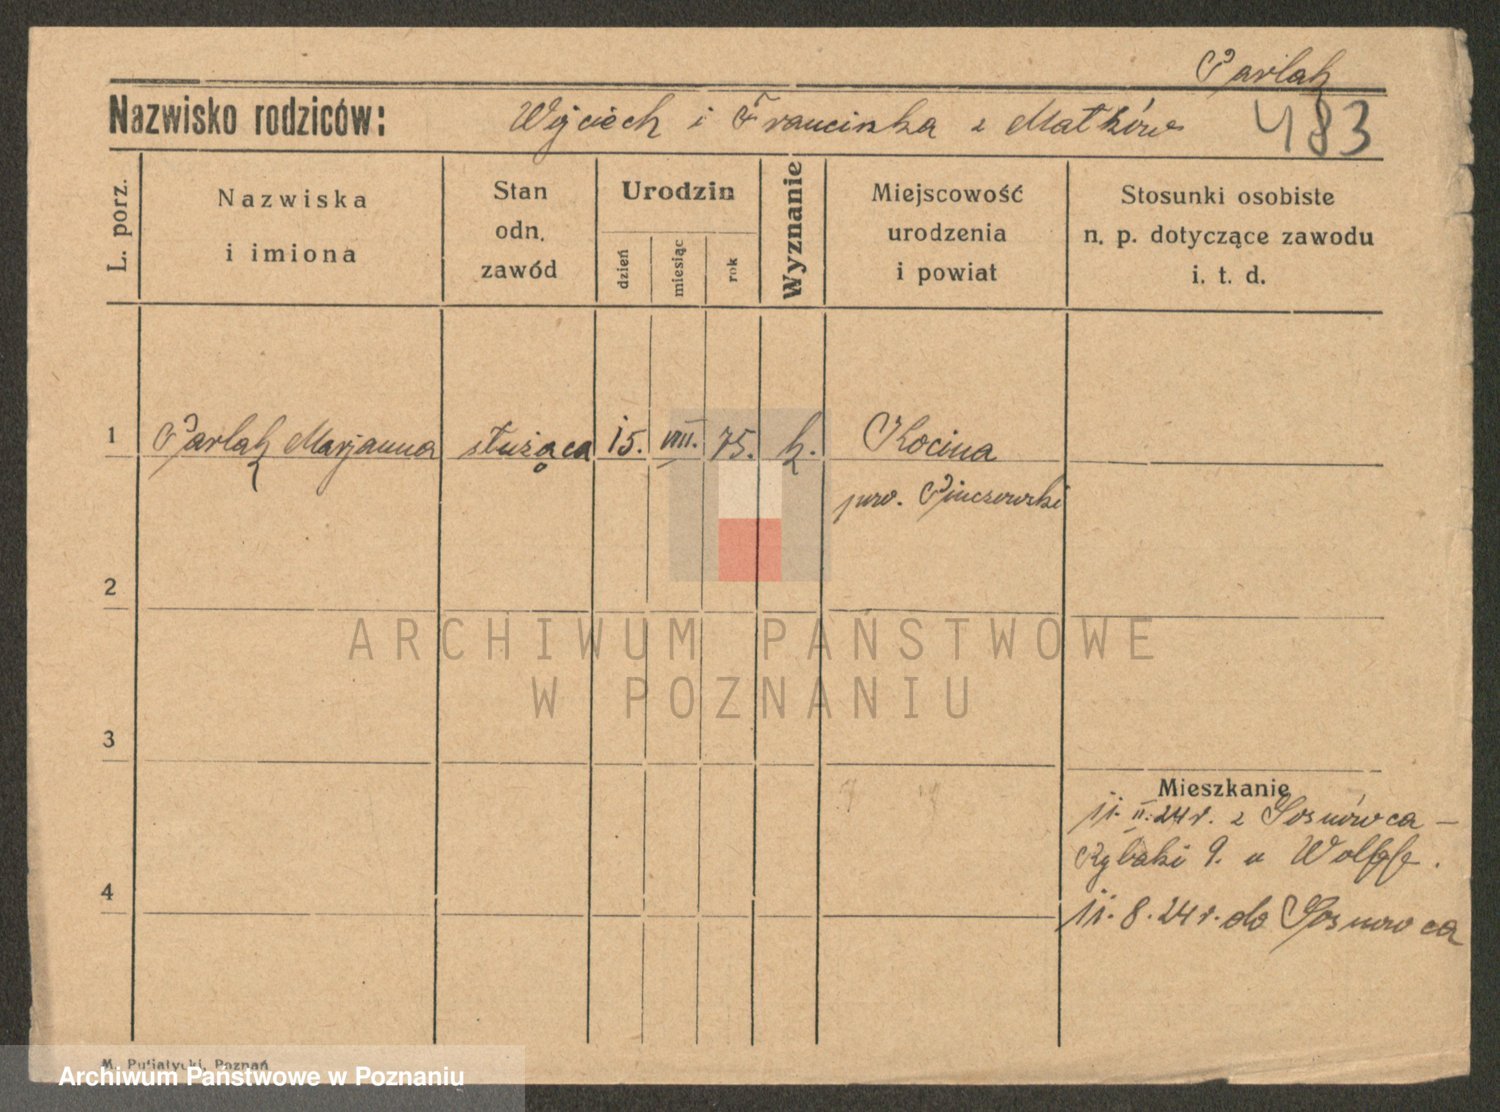 Parlak
Nazwisko rodziców: Wojciech i Franciszka z Matków 483
L. porz.
Nazwiska
i imiona
Stan
odn.
zawód
Urodzin
dzień
miesiąc
rok
Wyznanie
Miejscowość
urodzenia
i powiat
Stosunki osobiste
n. p. dotyczące zawodu
i. t. d.
1 Parlak Marjanna służąca 15. VIII. 75. k. Kocina
pow. Pinczowski
2
ARCHIWUM PAŃSTWOWE
W POZNANIU
3
Mieszkanie
11. II. 24 r. z Sosnówca —
Rybaki 9. u Wolff.
4
11. 8. 24 r. do Sosnowca
M. Putiatycki, Poznań
Archiwum Państwowe w Poznaniu